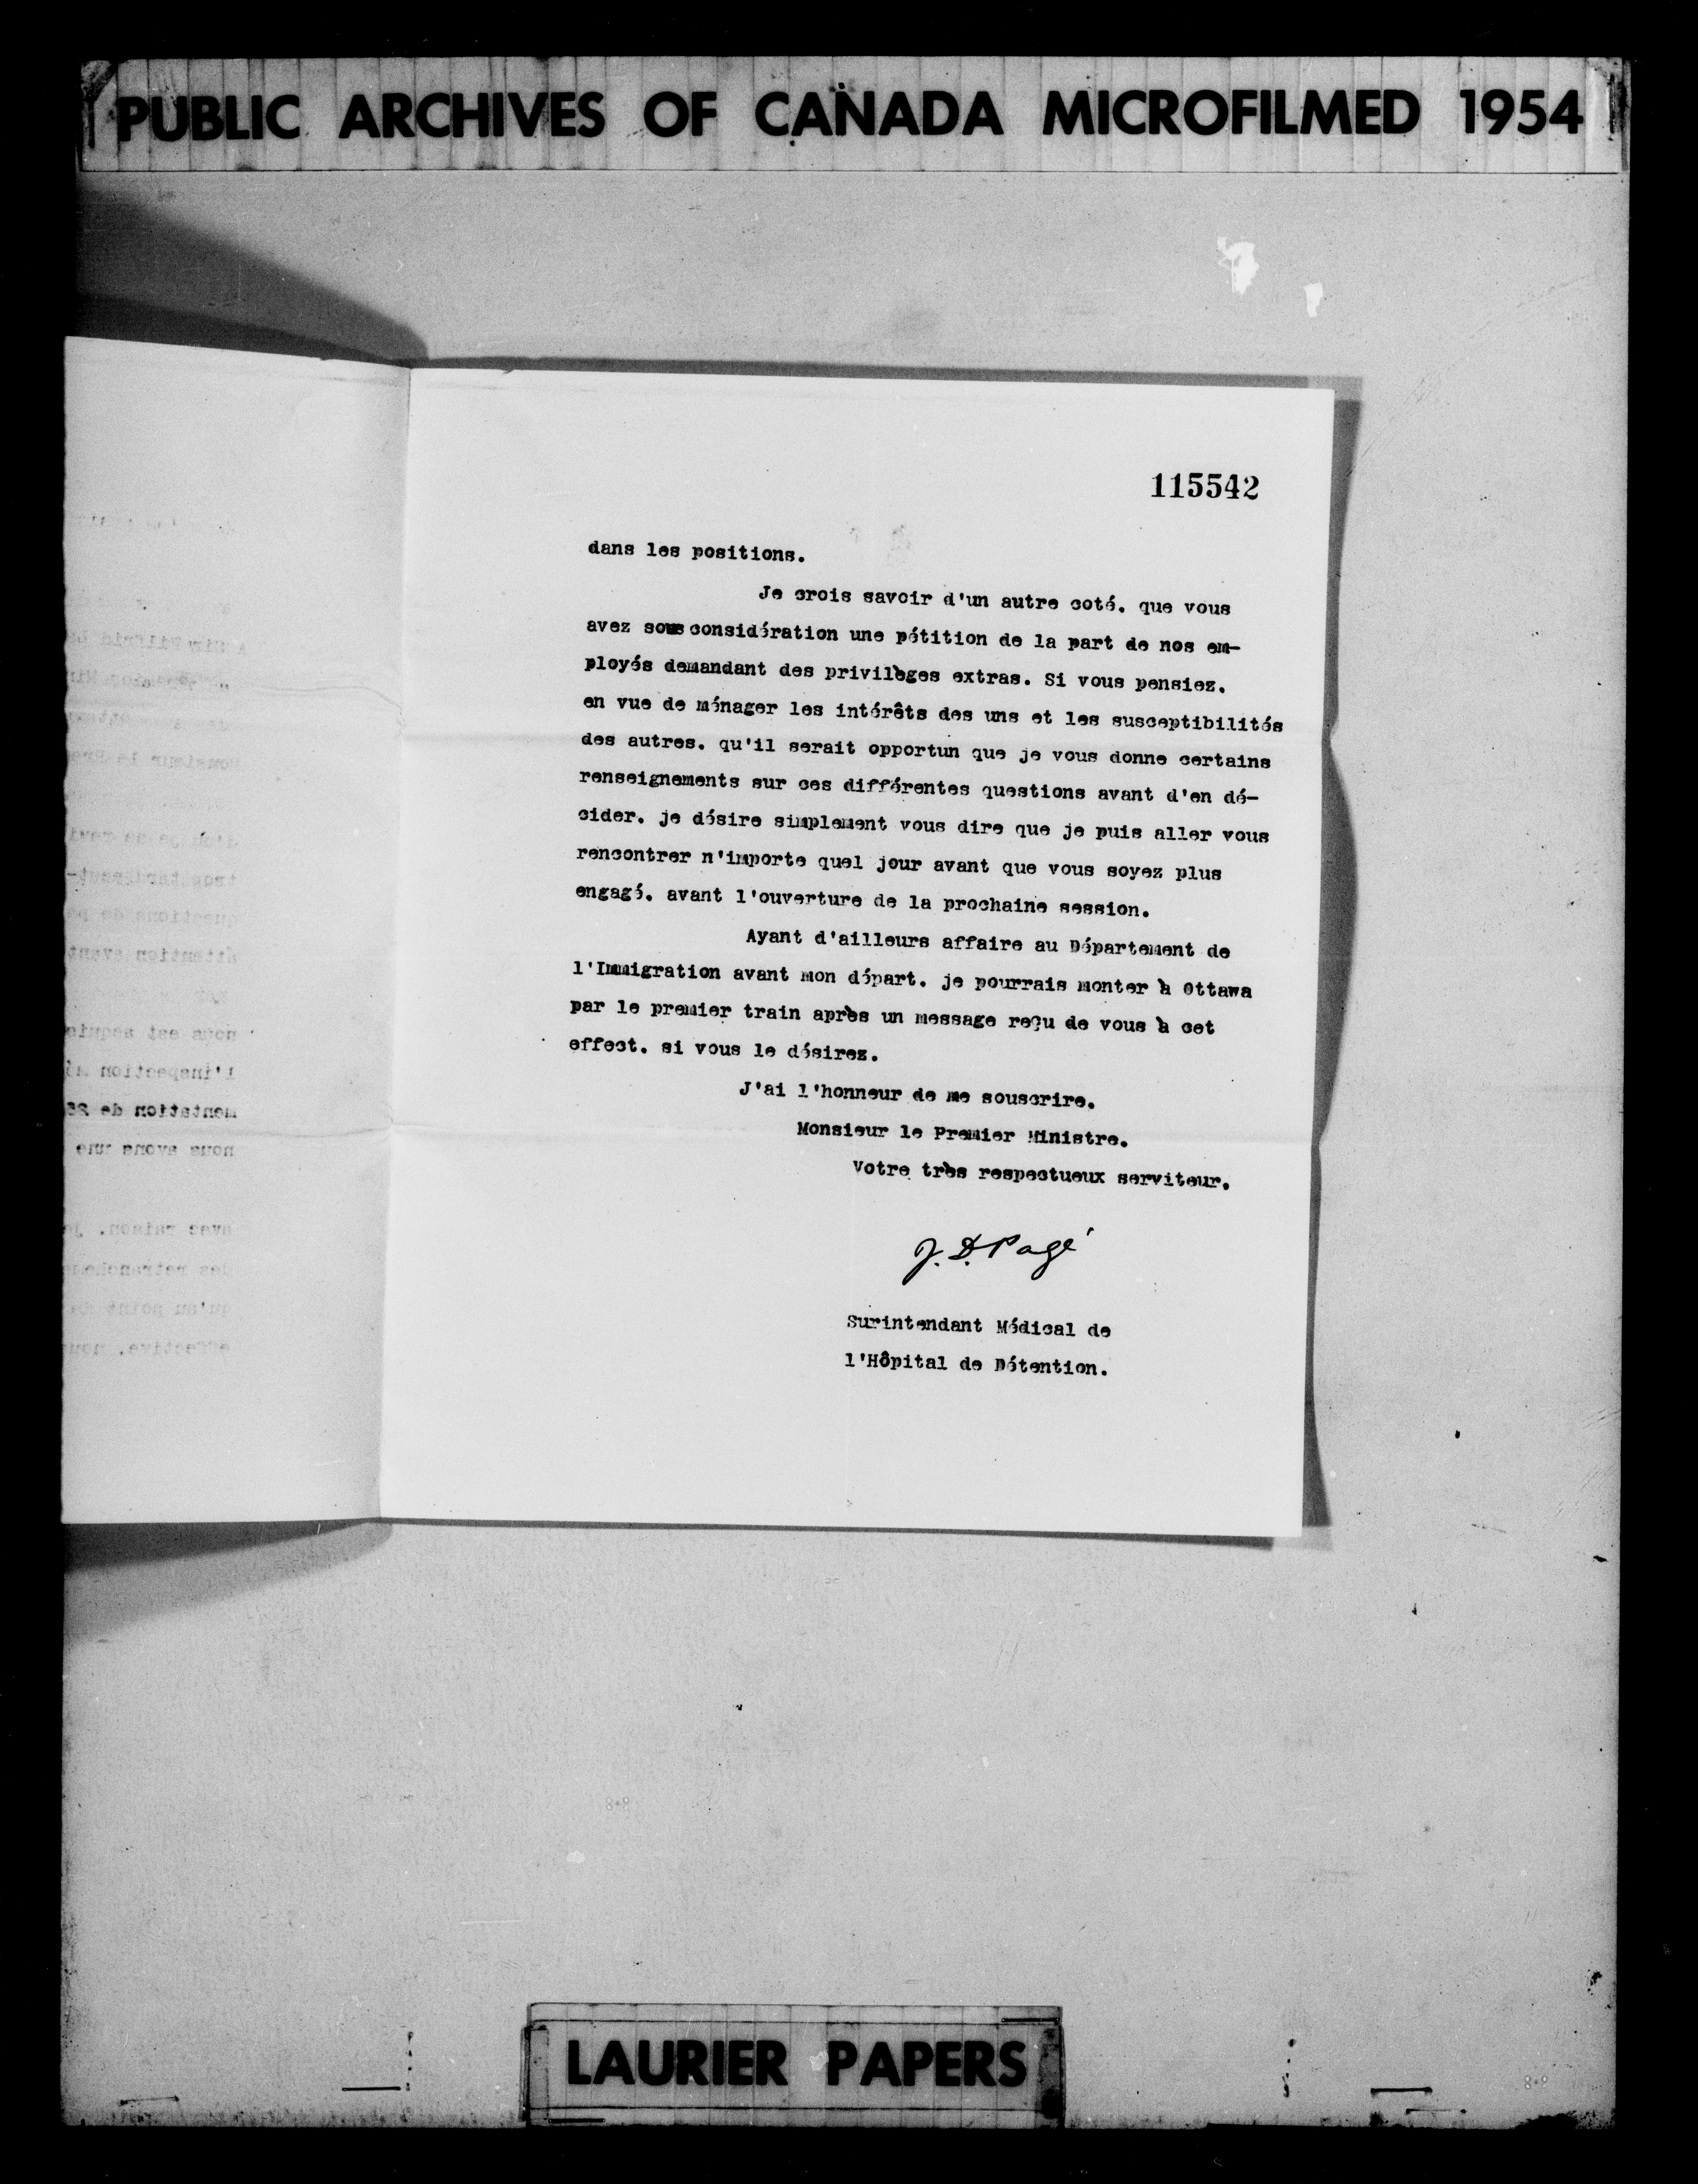 PUBLIC ARCHIVES OF CANADA MICROFILMED 1954
115542
dans les positions.
Je crois savoir d'un autre coté. que vous
avez sous considération une pétition de la part de nos em-
ployés demandant des privilèges extras. Si vous pensiez.
en vue de ménager les intérêts des uns et les susceptibilités
des autres. qu'il serait opportun que je vous donne certains
renseignements sur ces différentes questions avant d'en dé-
cider. je désire simplement vous dire que je puis aller vous
rencontrer n'importe quel jour avant que vous soyez plus
engagé. avant l'ouverture de la prochaine session.
Ayant d'ailleurs affaire au Département de
l'Immigration avant mon départ. je pourrais monter à Ottawa
par le premier train après un message reçu de vous à cet
effect. si vous le désirez.
J'ai l'honneur de me souscrire.
Monsieur le Premier Ministre.
Votre très respectueux serviteur.
J. D. Pagé
Surintendant Médical de
l'Hôpital de Détention.
LAURIER PAPERS